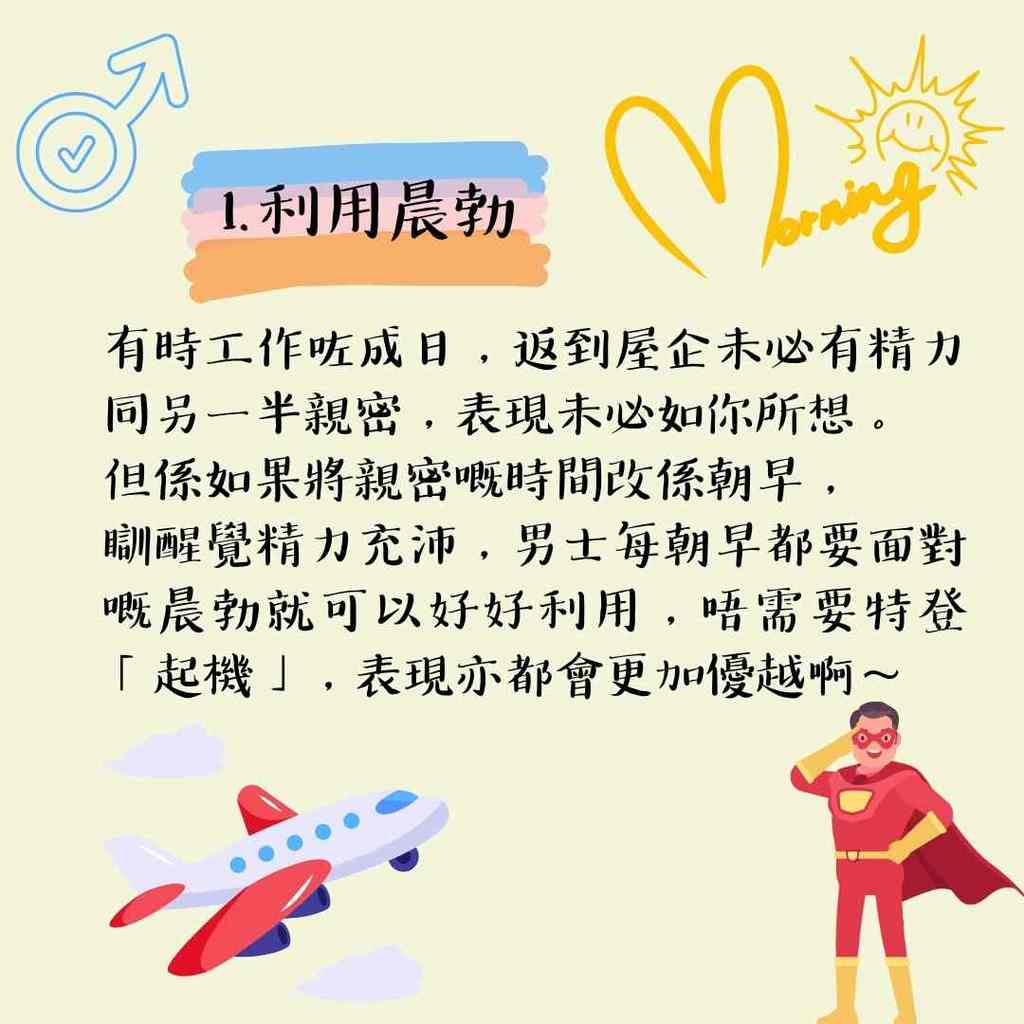 Morning
1.利用晨勃
有時工作咗成日，返到屋企未必有精力
同另一半親密，表現未必如你所想。
但係如果將親密嘅時間改係朝早，
瞓醒覺精力充沛，男士每朝早都要面對
嘅晨勃就可以好好利用，唔需要特登
「起機」，表現亦都會更加優越啊～